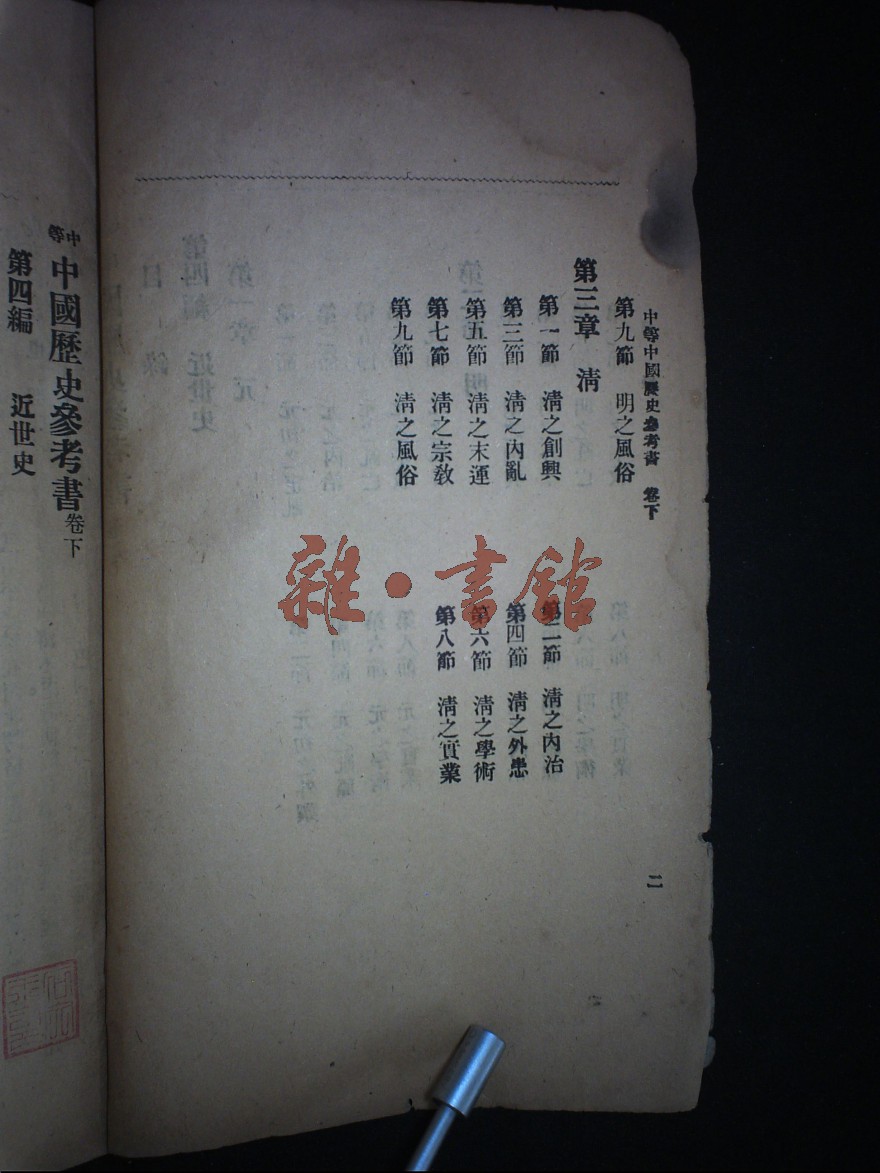 中等中國歷史參考書 卷下
二
第九節 明之風俗
第三章 清
第一節 清之創興
第二節 清之內治
第三節 清之內亂
第四節 清之外患
第五節 清之末運
第六節 清之學術
第七節 清之宗教
第八節 清之實業
第九節 清之風俗
雜·書館
中等中國歷史參考書卷下
第四編 近世史